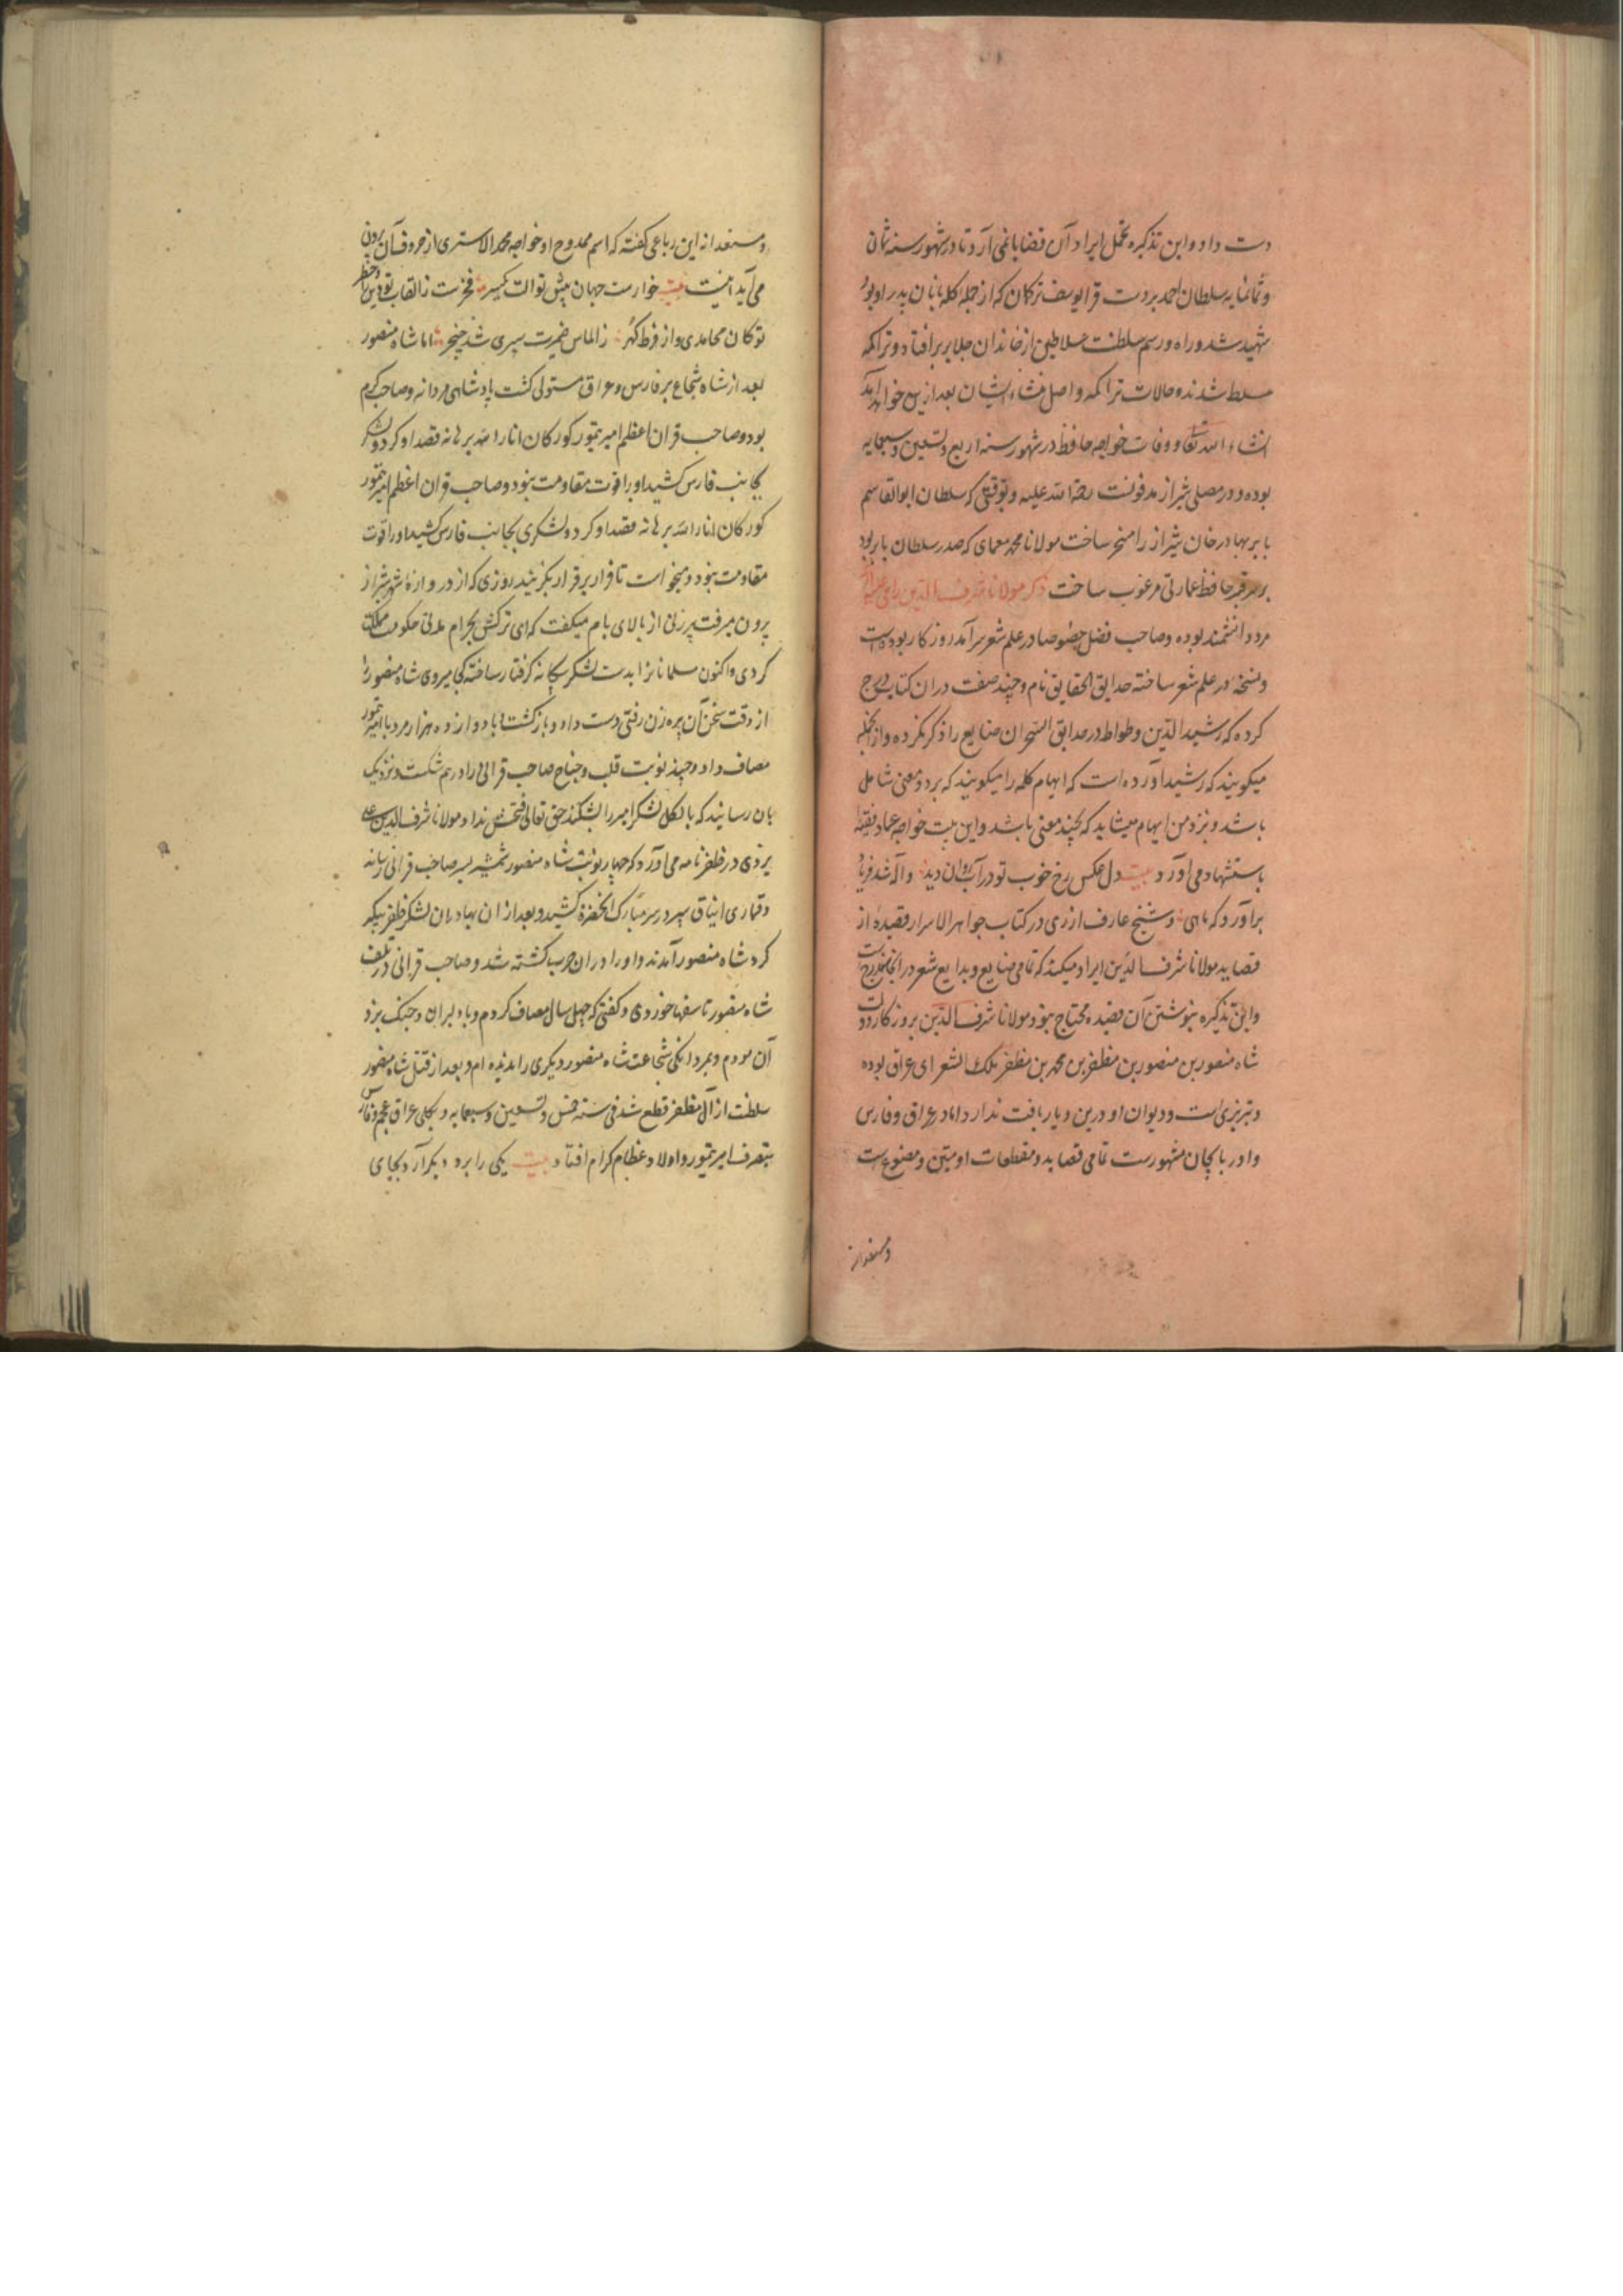 دست داد و این تذکره تحمل ایراد آن قضایا نمی آرد تا در شهور سنه ثمان
و ثمانمایه سلطان احمد بر دست قرا یوسف ترکان که از جمله کله بانان پدر او بود
شهید شد و راه و رسم سلطنت سلاطین از خاندان جلایر بر افتاد و تراکمه
مسلط شدند و حالات تراکمه و اصل منشاء ایشان بعد ازین خواهد آمد
انشاء الله تعا و وفات خواجه حافظ در شهور سنه اربع و تسعین و سبعمایه
بوده و در مصلی شیراز مدفونست رحمة الله علیه و بوقتی که سلطان ابوالقاسم
بابر بهادر خان شیراز را مسخر ساخت مولانا محمد معمای که صدر سلطان بابر بود
بر سر قبر حافظ عمارتی مرغوب ساخت ذکر مولانا شرف الدین رامی
مرد دانشمند بوده و صاحب فضل خصوصا در علم شعر سرآمد روزکار بوده است
و نسخه در علم شعر ساخته حدایق الحقایق نام و چند صنعت دران کتاب درج
کرده که رشید الدین وطواط در حدایق السحر ان صنایع را ذکر نکرده و از انجمله
میکویند که رشید اورده است که ایهام کلمه را میکویند که بر دو معنی شامل
باشد و نزد من ایهام میشاید که بچند معنی باشد و این بیت خواجه عماد فقیه
باستشهاد می اورد بیت دل عکس رخ خوب تو در آب روان دید واله شد و فریاد
براورد که ماهی و شیخ عارف ازری در کتاب جواهر الاسرار قصیده از
قصاید مولانا شرف الدین ایراد میکند که تمامی صنایع و بدایع شعر در انجا مندرج است
و این تذکیره بنوشتن آن قصیده محتاج بنود و مولانا شرف الدین بروزکار دولت
شاه منصور بن منصور بن مظفر بن محمد بن مظفر ملک الشعرای عراق بوده
و تبریزی است و دیوان او درین دیار یافت ندارد اما در عراق و فارس
و ادربایجان مشهورست تمامی قصاید و مقطعات او متین و مصنوع است
و مستعدانه
و مستعدانه این رباعی کفته که اسم ممدوح او خواجه محمد الاستری از حروف آن برون
می آید اینست بیت خوارست جهان پیش نوالت یکسر فخرست ز القاب تو دین را و خطر
تو کان محامدی و از فرط کهر ز الماس ضمیرت سپری شد خنجر اما شاه منصور
بعد از شاه شجاع بر فارس و عراق مستولی کشت پادشاهی مردانه و صاحب کرم
بود و صاحب قران اعظم امیر تیمور کورکان انار الله برهانه قصد او کرد و لشکر
بجانب فارس کشید او را قوت مقاومت بنود و صاحب قران اعظم امیر تیمور
کورکان انار الله برهانه قصد او کرد و لشکری بجانب فارس کشید او را قوت
مقاومت بنود و میخواست تا فرار بر قرار بکزیند روزی که از دروازه شهر شیراز
برون میرفت پیرزنی از بالای بام میکفت که ای ترکش بحرام مدتی حکومت مملکت
کردی و اکنون مسلمانانرا بدست لشکر بیکانه کرفتار ساخته کجا میروی شاه منصور را
از دقت سخن آن پیره زن رفتی دست داد و بازکشت و با دوازده هزار مرد با امیر تیمور
مصاف داد و چند نوبت قلب و جناح صاحب قرانی را درهم شکست و نزدیک
بان رسانید که بالکل لشکر امیر را بشکند حق تعالی فتحش نداد و مولانا شرف الدین علی
یزدی در ظفر نامه می اورد که چهار نوبت شاه منصور شمشیر بسر صاحب قرانی رسانید
و قماری ایناق سپر در سر مبارک انحضرة کشید و بعد از ان بهادران لشکر ظفر پیکر
کرد شاه منصور آمدند و او را دران حرب کشته شد و صاحب قرانی در تلف
شاه منصور تاسفها خوردی و کفتی که چهل سال مصاف کردم و با دلیران و جنک نبرد
آن مودم و بمردانکی شجاعت شاه منصور دیکری را ندیده ام و بعد از قتل شاه منصور
سلطنت از آل مظفر قطع شد فی سنه خمس و تسعین و سبعمایه و بکلی عراق عجم و فارس
بتصرف امیر تیمور و اولاد عظام کرام افتاد بیت یکی را برد دیکر آرد بجای